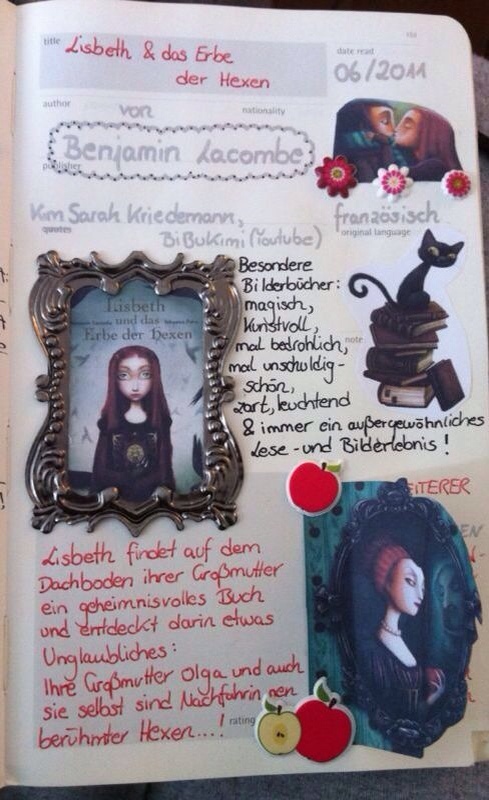 title
Lisbeth & das Erbe
der Hexen
date read
06/2011
author
von
nationality
Benjamin Lacombe
publisher
Kim Sarah Kriedemann,
BiBuKimi (Youtube)
quotes
französisch
original language
Lisbeth
und das
Erbe der Hexen
Besondere
Bilderbücher:
magisch,
kunstvoll,
mal bedrohlich,
mal unschuldig-
schön,
zart, leuchtend
& immer ein außergewöhnliches
Lese- und Bilderlebnis!
note
EITERER
EN
Lisbeth findet auf dem
Dachboden ihrer Großmutter
ein geheimnisvolles Buch
und entdeckt darin etwas
Unglaubliches:
Ihre Großmutter Olga und auch
sie selbst sind Nachfahrinnen
berühmter Hexen...!
rating